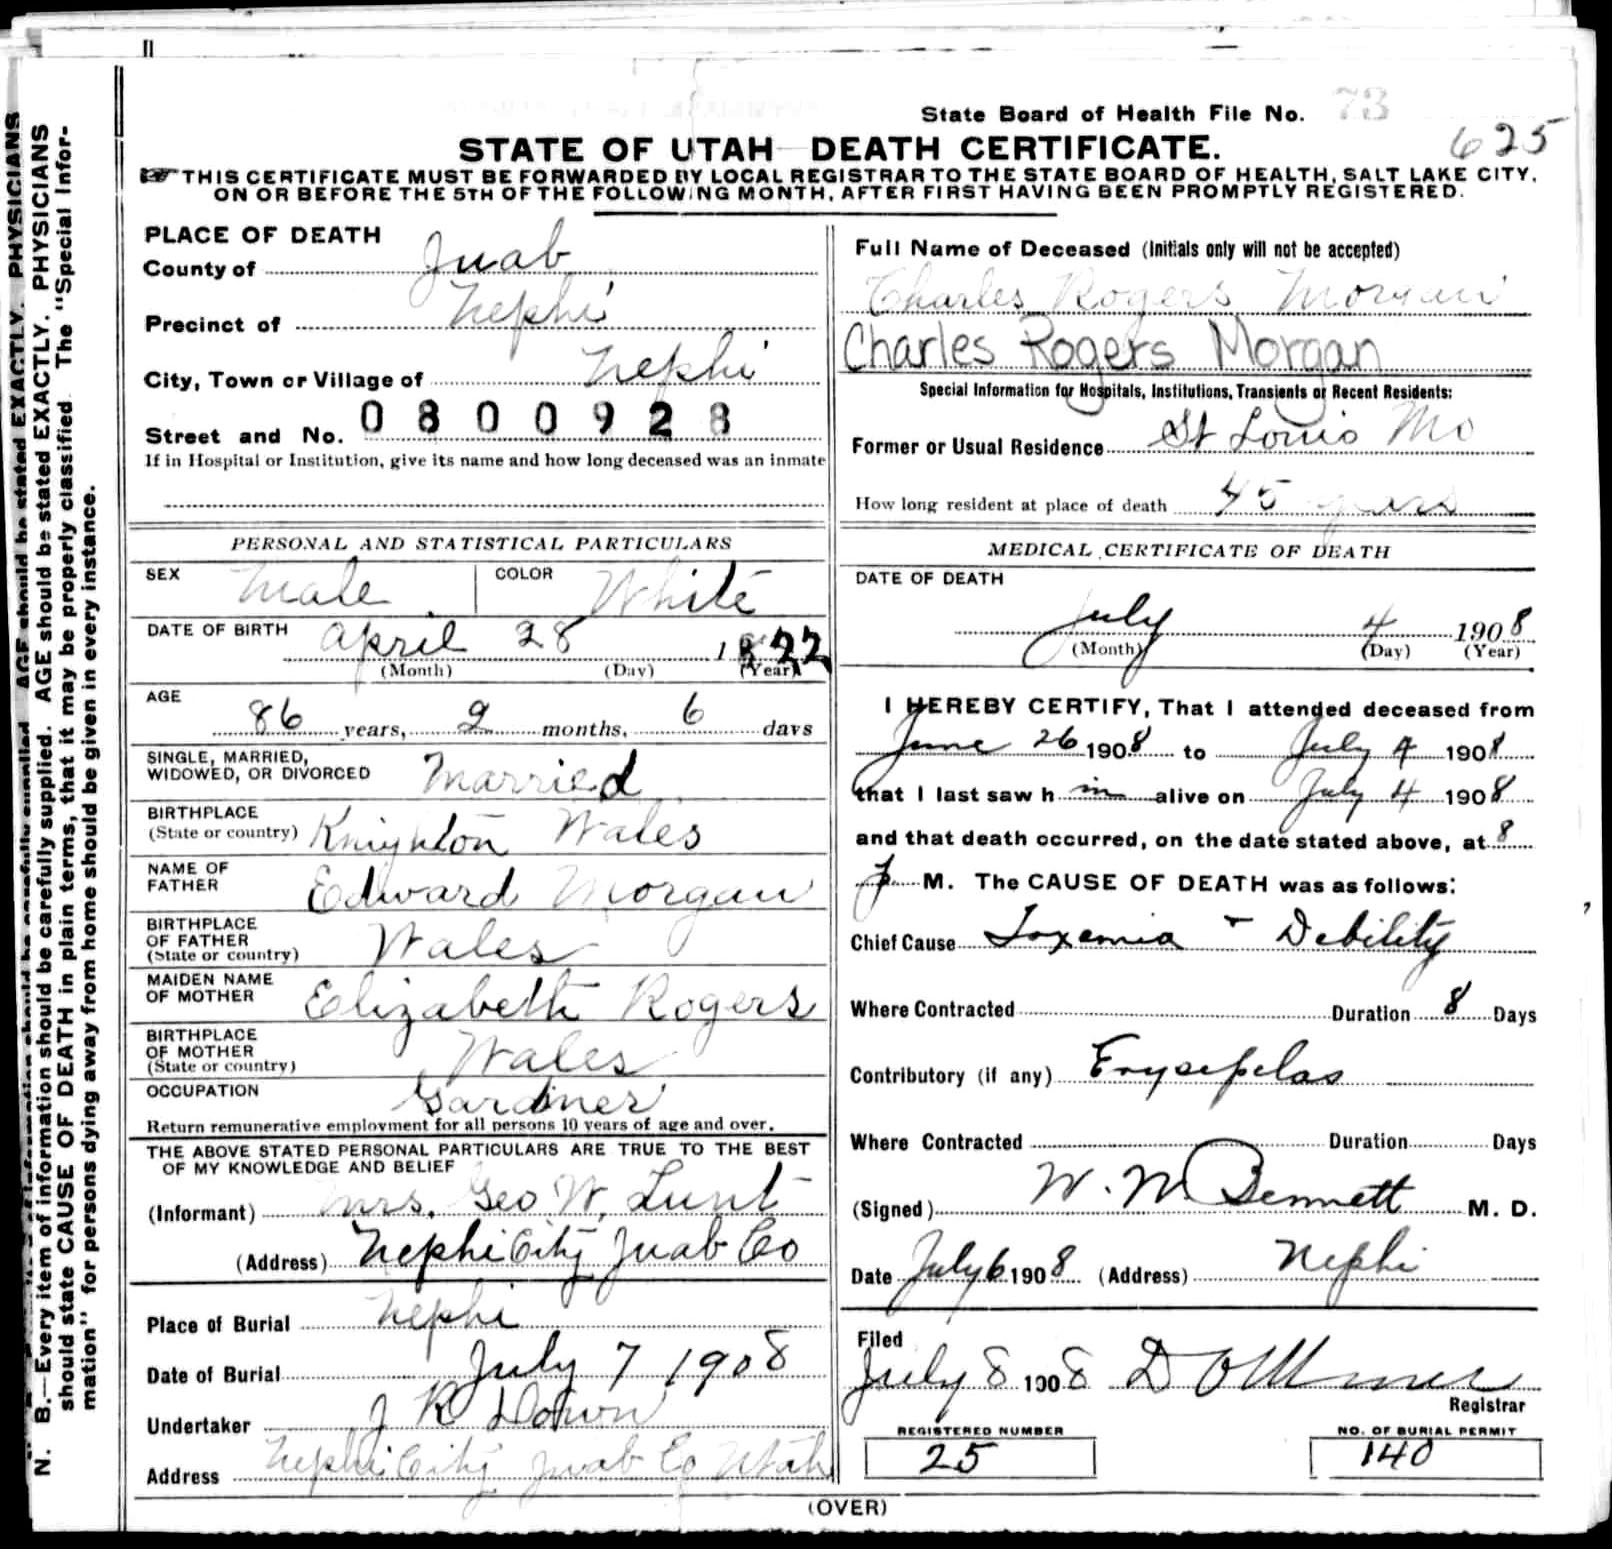 State Board of Health File No. 73
625
STATE OF UTAH DEATH CERTIFICATE.
THIS CERTIFICATE MUST BE FORWARDED BY LOCAL REGISTRAR TO THE STATE BOARD OF HEALTH, SALT LAKE CITY,
ON OR BEFORE THE 5TH OF THE FOLLOWING MONTH, AFTER FIRST HAVING BEEN PROMPTLY REGISTERED.
N. B.—Every item of information should be carefully supplied. AGE should be stated EXACTLY. PHYSICIANS
should state CAUSE OF DEATH in plain terms, that it may be properly classified. The "Special Infor-
mation" for persons dying away from home should be given in every instance.
PLACE OF DEATH
County of Juab
Precinct of Nephi
City, Town or Village of Nephi
Street and No. 0800928
If in Hospital or Institution, give its name and how long deceased was an inmate
PERSONAL AND STATISTICAL PARTICULARS
SEX Male COLOR White
DATE OF BIRTH April 28 1822
(Month) (Day) (Year)
AGE
86 years, 2 months, 6 days
SINGLE, MARRIED,
WIDOWED, OR DIVORCED Married
BIRTHPLACE
(State or country) Knighton Wales
NAME OF
FATHER Edward Morgan
BIRTHPLACE
OF FATHER Wales
(State or country)
MAIDEN NAME
OF MOTHER Elizabeth Rogers
BIRTHPLACE
OF MOTHER Wales
(State or country)
OCCUPATION Gardner
Return remunerative employment for all persons 10 years of age and over.
THE ABOVE STATED PERSONAL PARTICULARS ARE TRUE TO THE BEST
OF MY KNOWLEDGE AND BELIEF
(Informant) Mrs. Geo W. Lunt
(Address) Nephi City Juab Co
Place of Burial Nephi
Date of Burial July 7 1908
Undertaker J R
Address Nephi City Juab Co Utah
Full Name of Deceased (Initials only will not be accepted)
Charles Rogers Morgan
Charles Rogers Morgan
Special Information for Hospitals, Institutions, Transients or Recent Residents:
Former or Usual Residence St Louis Mo
How long resident at place of death 45 years
MEDICAL CERTIFICATE OF DEATH
DATE OF DEATH
July 4 1908
(Month) (Day) (Year)
I HEREBY CERTIFY, That I attended deceased from
June 26 1908 to July 4 1908
that I last saw h im alive on July 4 1908
and that death occurred, on the date stated above, at 8
P M. The CAUSE OF DEATH was as follows:
Chief Cause Toxemia + Debility
Where Contracted Duration 8 Days
Contributory (if any) Erysepelas
Where Contracted Duration Days
(Signed) W. W Bennett M. D.
Date July 6 1908 (Address) Nephi
Filed
July 8 1908
Registrar
REGISTERED NUMBER
25
NO. OF BURIAL PERMIT
140
(OVER)